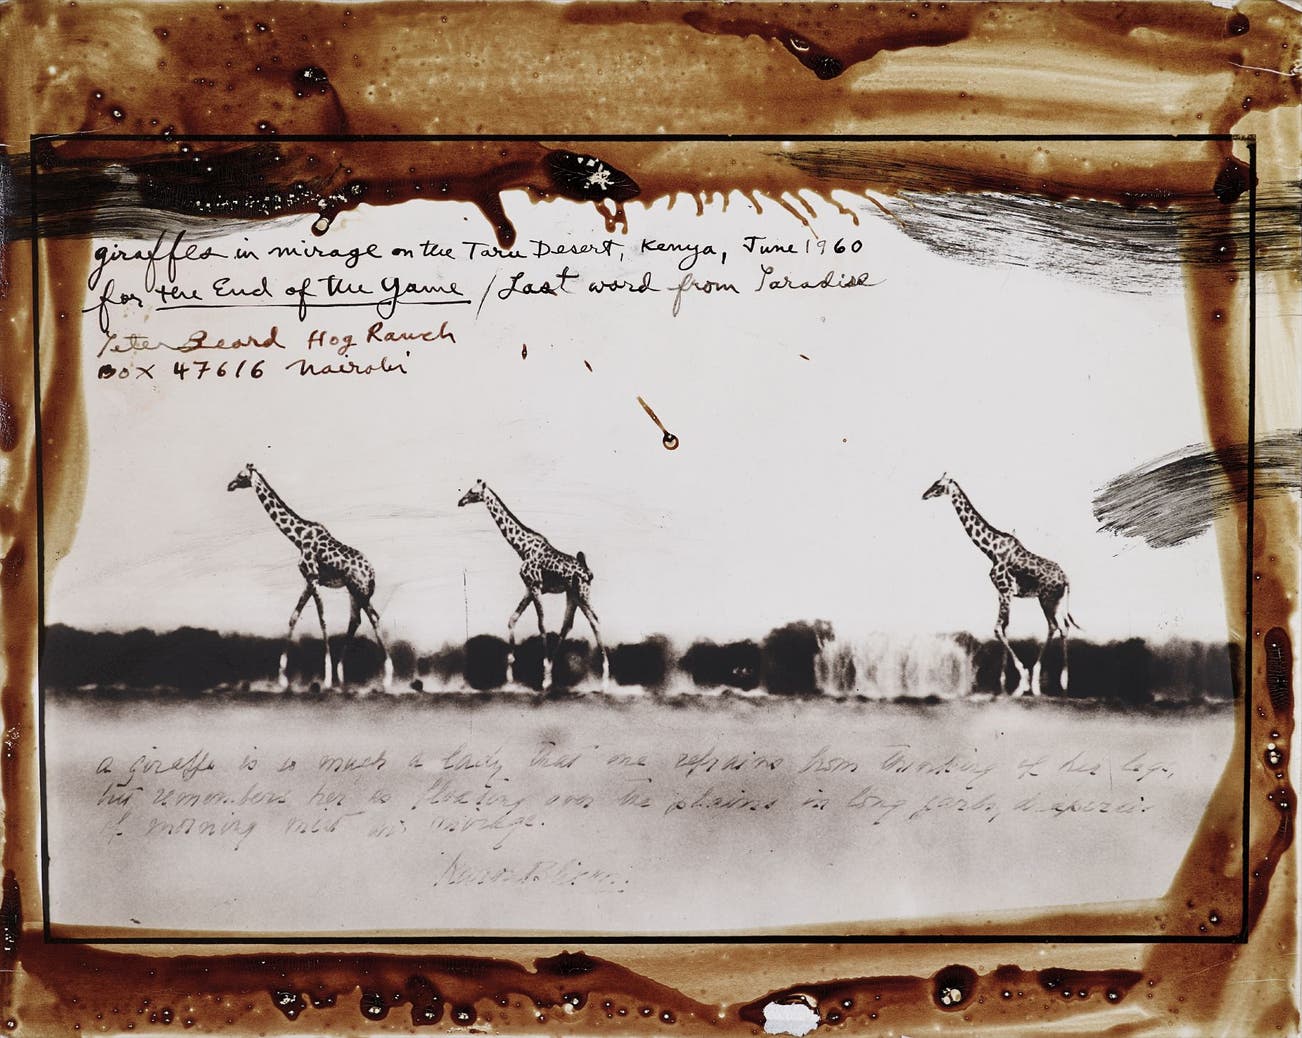 giraffes in mirage on the Taru Desert, Kenya, June 1960
for the End of the Game / Last word from Paradise
Peter Beard Hog Ranch
Box 47616 Nairobi
a giraffe is so much a lady that one refrains from thinking of her legs,
but remembers her as floating over the plains in long garbs, draperies
of morning mist or mirage.
Karen Blixen.